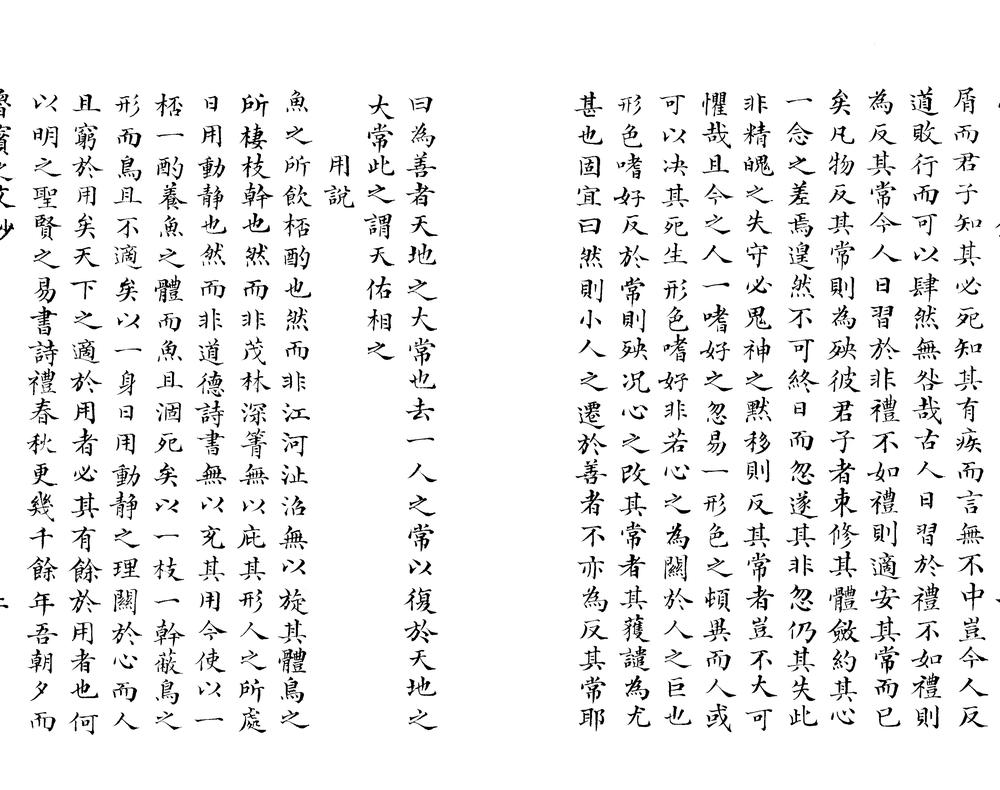 屑而君子知其必死知其有疾而言無不中豈今人反
道敗行而可以肆然無咎哉古人日習於禮不如禮則
為反其常今人日習於非禮不如禮則適安其常而已
矣凡物反其常則為殃彼君子者束修其體斂約其心
一念之差焉遑然不可終日而忽遂其非忽仍其失此
非精魄之失守必鬼神之黙移則反其常者豈不大可
懼哉且今之人一嗜好之忽易一形色之頓異而人或
可以决其死生形色嗜好非若心之為關於人之巨也
形色嗜好反於常則殃况心之改其常者其獲譴為尤
甚也固宜曰然則小人之遷於善者不亦為反其常耶
曰為善者天地之大常也去一人之常以復於天地之
大常此之謂天佑相之
用說
魚之所飲桮酌也然而非江河沚沼無以旋其體鳥之
所棲枝幹也然而非茂林深箐無以庇其形人之所處
日用動静也然而非道德詩書無以充其用今使以一
桮一酌養魚之體而魚且涸死矣以一枝一幹蔽鳥之
形而鳥且不適矣以一身日用動静之理關於心而人
且窮於用矣天下之適於用者必其有餘於用者也何
以明之聖賢之易書詩禮春秋更幾千餘年吾朝夕而